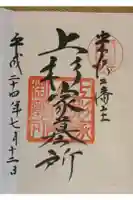 米沢藩主
上杉家墓所
平成二十四年七月十三日